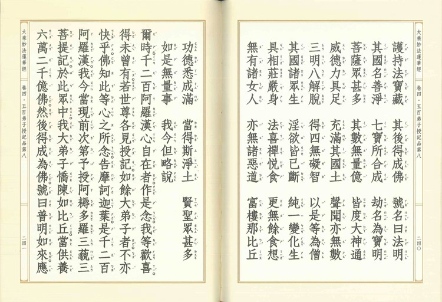 護持法寶藏　其後得成佛　號名曰法明
其國名善淨　七寶所合成　劫名為寶明
菩薩眾甚多　其數無量億　皆度大神通
威德力具足　充滿其國土　聲聞亦無數
三明八解脫　得四無礙智　以是等為僧
其國諸眾生　淫欲皆已斷　純一變化生
具相莊嚴身　法喜禪悅食　更無餘食想
無有諸女人　亦無諸惡道　富樓那比丘
功德悉成滿　當得斯淨土　賢聖眾甚多
如是無量事　我今但略說
爾時千二百阿羅漢心自在者作是念我等歡喜
得未曾有若世尊各見授記如餘大弟子者不亦
快乎佛知此等心之所念告摩訶迦葉是千二百
阿羅漢我今當現前次第予授阿耨多羅三藐三
菩提記於此眾中我大弟子憍陳如比丘當供養
六萬二千億佛然後得成為佛號曰普明如來應